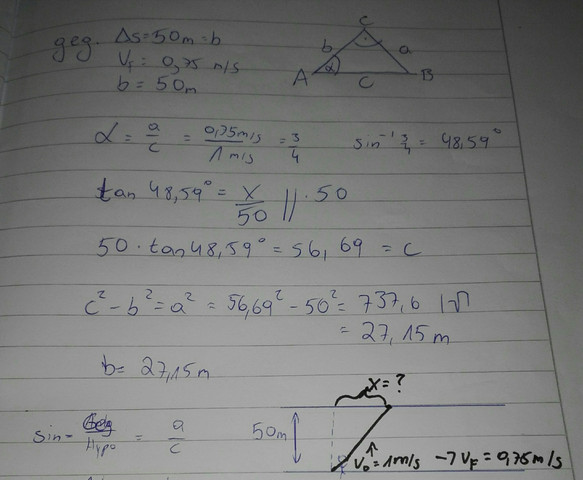 geg. Δs=50m=b
V_F = 0,75 m/s
b = 50m
C
b
a
A
α
c
B
α = a/c = 0,75m/s / 1 m/s = 3/4
sin⁻¹ 3/4 = 48,59°
tan 48,59° = x/50 || · 50
50 · tan 48,59° = 56,69 = c
c² - b² = a² = 56,69² - 50² = 737,6 |√
= 27,15 m
b = 27,15m
x = ?
sin- Hypo = a/c
50m
V₀ = 1m/s
→ V_F = 0,75 m/s